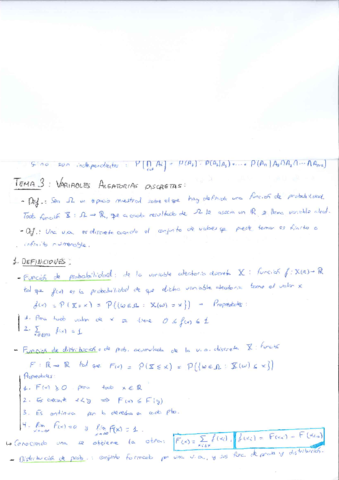 Si no son independientes : P[⋂ Ai] = P(A1) · P(A2|A1) · ... · P(An|A1∩A2∩...An-1)
TEMA 3 : VARIABLES ALEATORIAS DISCRETAS :
- Def : Sea Ω un espacio muestral sobre el que hay definida una función de probabilidad.
Toda función X : Ω → R, que a cada resultado de Ω le asocia un R se llama variable aleat.
- Def : Una v.a. es discreta cuando el conjunto de valores que puede tomar es finito o
infinito numerable.
1. DEFINICIONES :
- Función de probabilidad : de la variable aleatoria discreta X : función f : X(Ω) → R
tal que f(x) es la probabilidad de que dicha variable aleatoria tome el valor x
f(x) = P(X = x) = P({ω ∈ Ω : X(ω) = x}) → Propiedades :
1. Para todo valor de x se tiene 0 ≤ f(x) ≤ 1
2. Σ f(x) = 1
- Función de distribución de prob. acumulada de la v.a. discreta X función
F : R → R tal que F(x) = P(X ≤ x) = P({ω ∈ Ω : X(ω) ≤ x})
Propiedades :
1. F(x) ≥ 0 para todo x ∈ R
2. Es creciente F(x) ≤ F(y)
3. Es continua por la derecha en cada pto.
4. lim F(x) = 0 y lim F(x) = 1.
↳ Conociendo una se obtiene la otra : F(x) = Σ f(xi) f(xi) = F(xi) - F(xi-1)
- Distribución de prob. : conjunto formado por una v.a., y su func. de prob. y distribución.